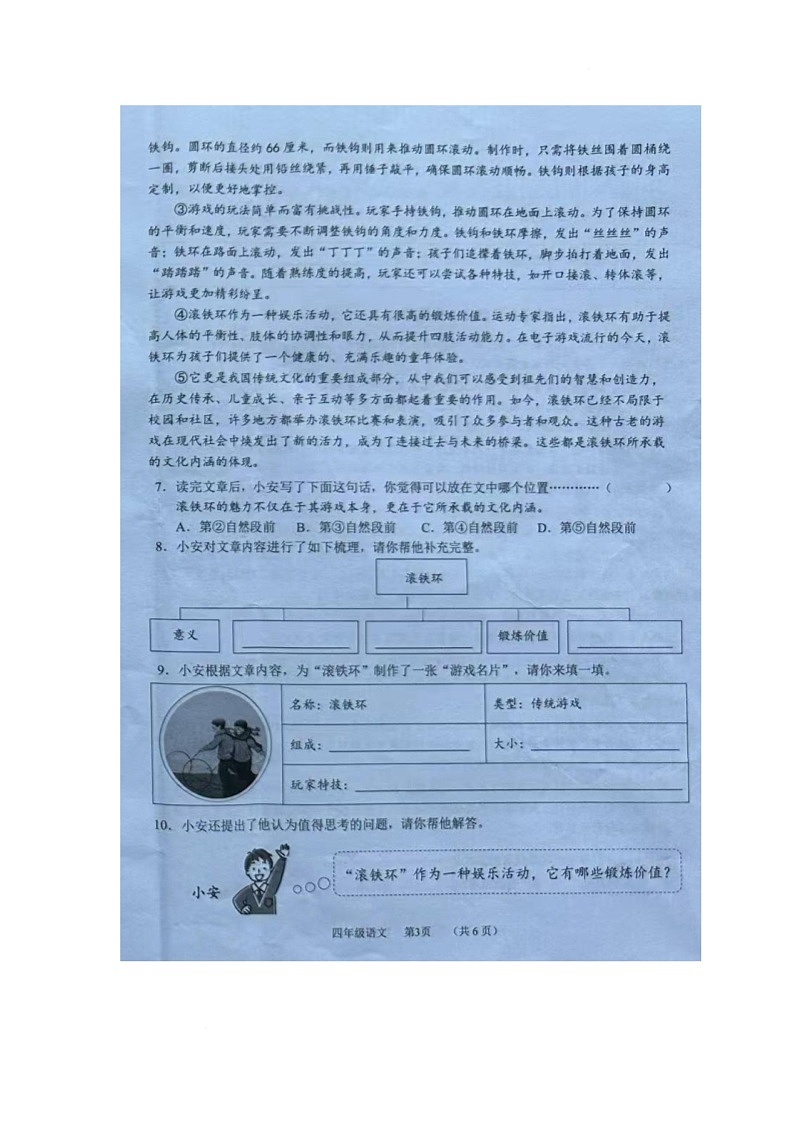 铁钩。圆环的直径约 66 厘米，而铁钩则用来推动圆环滚动。制作时，只需将铁丝围着圆桶绕
一圈，剪断后接头处用铅丝绕紧，再用锤子敲平，确保圆环滚动顺畅。铁钩则根据孩子的身高
定制，以便更好地掌控。
③游戏的玩法简单而富有挑战性。玩家手持铁钩，推动圆环在地面上滚动。为了保持圆环
的平衡和速度，玩家需要不断调整铁钩的角度和力度。铁钩和铁环摩擦，发出“丝丝丝”的声
音；铁环在路面上滚动，发出“丁丁丁”的声音；孩子们追撵着铁环，脚步拍打着地面，发出
“踏踏踏”的声音。随着熟练度的提高，玩家还可以尝试各种特技，如开口接滚、转体滚等，
让游戏更加精彩纷呈。
④滚铁环作为一种娱乐活动，它还具有很高的锻炼价值。运动专家指出，滚铁环有助于提
高人体的平衡性、肢体的协调性和眼力，从而提升四肢活动能力。在电子游戏流行的今天，滚
铁环为孩子们提供了一个健康的、充满乐趣的童年体验。
⑤它更是我国传统文化的重要组成部分，从中我们可以感受到祖先们的智慧和创造力，
在历史传承、儿童成长、亲子互动等多方面都起着重要的作用。如今，滚铁环已经不局限于
校园和社区，许多地方都举办滚铁环比赛和表演，吸引了众多参与者和观众。这种古老的游
戏在现代社会中焕发出了新的活力，成为了连接过去与未来的桥梁。这些都是滚铁环所承载
的文化内涵的体现。
7．读完文章后，小安写了下面这句话，你觉得可以放在文中哪个位置…………（　　）
滚铁环的魅力不仅在于其游戏本身，更在于它所承载的文化内涵。
A．第②自然段前　B．第③自然段前　C．第④自然段前　D．第⑤自然段前
8．小安对文章内容进行了如下梳理，请你帮他补充完整。
滚铁环
意义　锻炼价值
9．小安根据文章内容，为“滚铁环”制作了一张“游戏名片”，请你来填一填。
名称：滚铁环　类型：传统游戏
组成：　大小：
玩家特技：
10．小安还提出了他认为值得思考的问题，请你帮他解答。
小安
“滚铁环”作为一种娱乐活动，它有哪些锻炼价值？
四年级语文　第3页　（共 6 页）